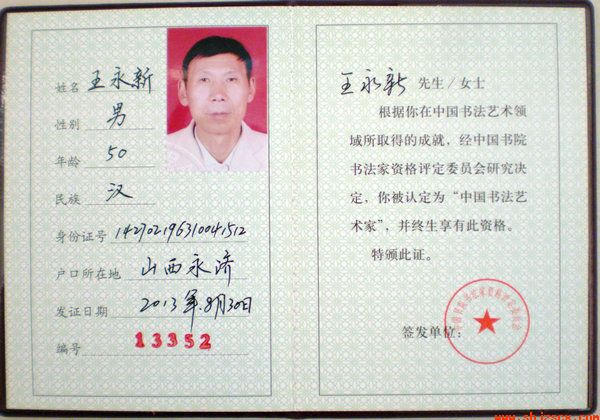 姓名 王永新
性别 男
年龄 50
民族 汉
身份证号 142702196310041512
户口所在地 山西永济
发证日期 2013年8月30日
编号 13352
王永新 先生/女士
根据你在中国书法艺术领
域所取得的成就，经中国书院
书法家资格评定委员会研究决
定，你被认定为“中国书法艺
术家”，并终生享有此资格。
特颁此证。
签发单位：